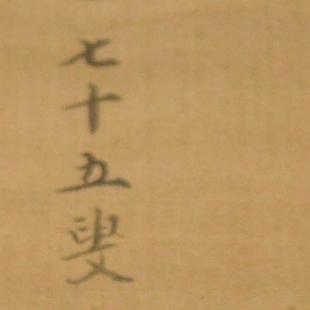 七十五叟